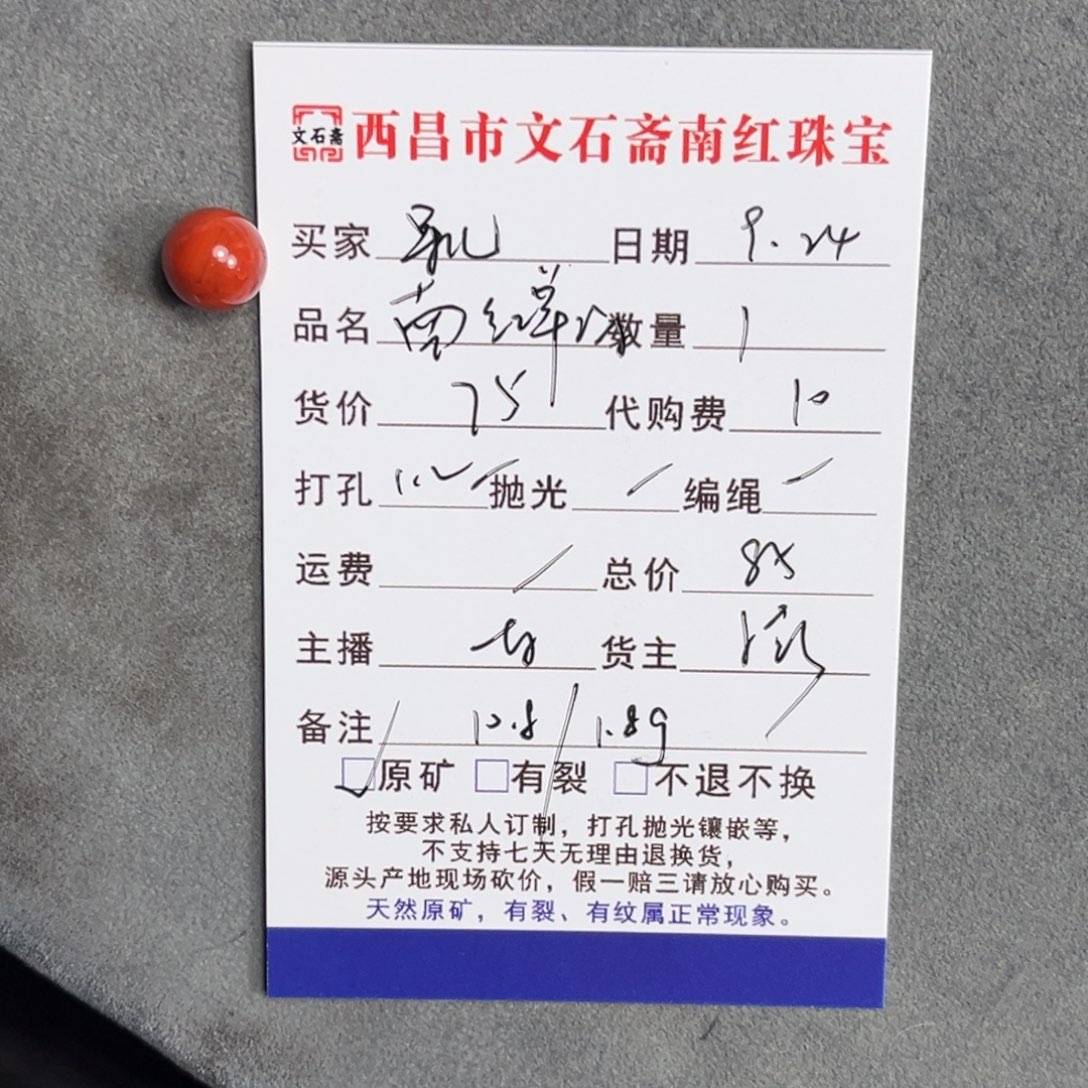 文石斋 西昌市文石斋南红珠宝
买家 日期 9.24
品名 南红单珠 数量 1
货价 75 代购费 10
打孔 抛光 / 编绳 /
运费 / 总价 85
主播 货主
备注 10.8/1.8g
原矿 有裂 不退不换
按要求私人订制，打孔抛光镶嵌等，
不支持七天无理由退换货，
源头产地现场砍价，假一赔三请放心购买。
天然原矿，有裂、有纹属正常现象。